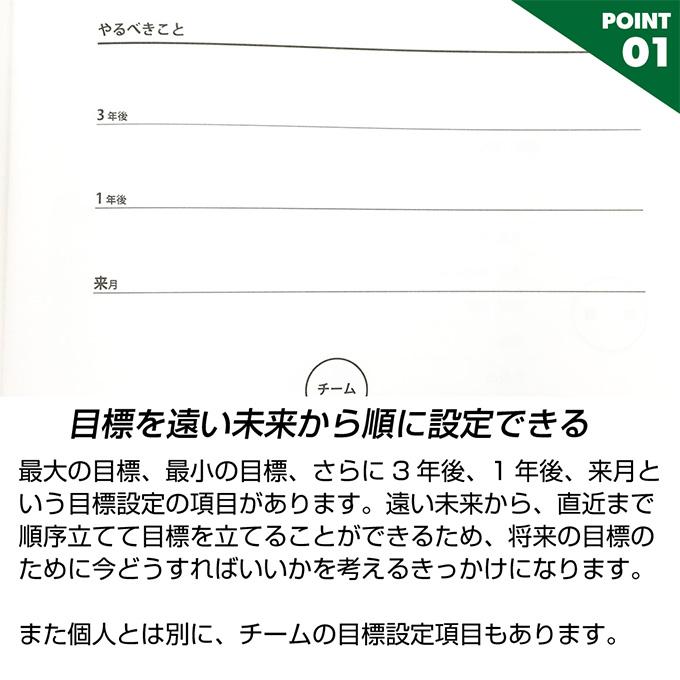 POINT
01
やるべきこと
3年後
1年後
来月
チーム
目標を遠い未来から順に設定できる
最大の目標、最小の目標、さらに3年後、1年後、来月と
いう目標設定の項目があります。遠い未来から、直近まで
順序立てて目標を立てることができるため、将来の目標の
ために今どうすればいいかを考えるきっかけになります。
また個人とは別に、チームの目標設定項目もあります。